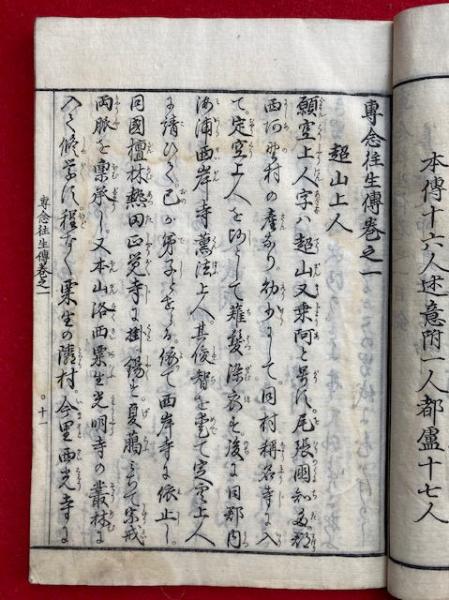 本傳十六人述意附一人都盧十七人
專念往生傳卷之一
超山上人
願空上人字ハ超山又乗阿と号す尾張國知多郡
西阿野村の産なり幼少にして同村稱名寺に入
て定空上人を師として薙髪染衣を後に同郡内
海浦西岸寺薫法上人其俊智を愛て定空上人
に請ひて己が弟子とせり依て西岸寺に依止し
同國檀林熱田正覚寺に掛錫を夏﨟みちて宗戒
両脈を稟承し又本山洛西粟生光明寺の叢林に
入て脩学す程なく粟生の隣村今里西光寺に
專念往生傳卷之一
十一